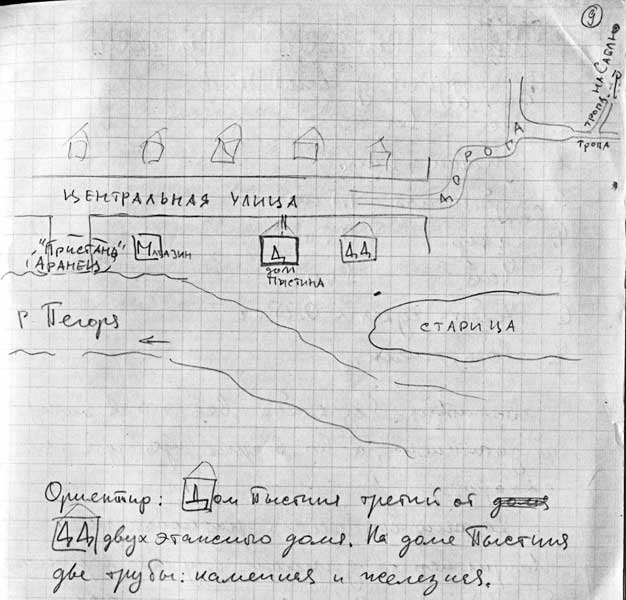 9
ТРОПА НА САБЛЮ
ТРОПА
ДОРОГА
ЦЕНТРАЛЬНАЯ УЛИЦА
"ПРИСТАНЬ"
(АРАНЕЦ)
МАГАЗИН
Д
ДОМ
ПЫСТИНА
ДД
Р ПЕЧОРА
СТАРИЦА
Ориентир: Дом Пыстина третий от
ДД двух этажного дома. На доме Пыстина
две трубы: каменная и железная.